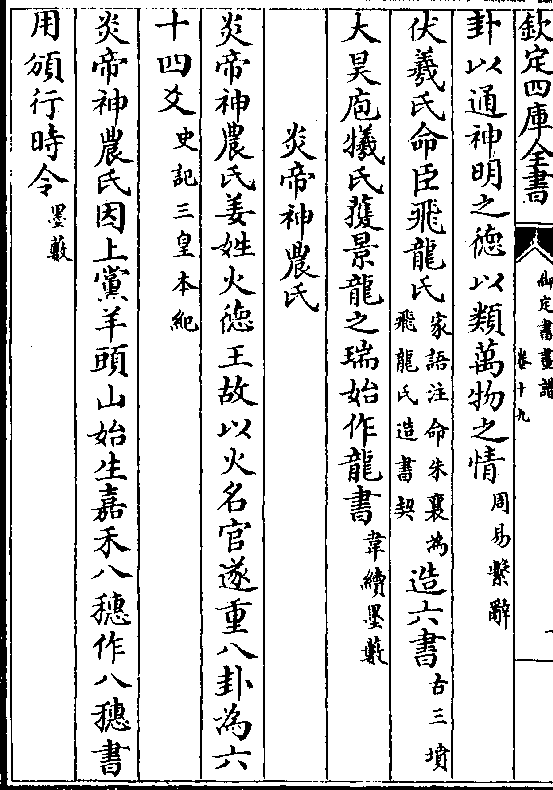 欽定四庫全書
御定書畫譜
卷十九
卦以通神明之德以類萬物之情周易繫辭
伏羲氏命臣飛龍氏家語注命朱襄為飛龍氏造書契造六書古三墳
大昊庖犧氏獲景龍之瑞始作龍書韋續墨藪
炎帝神農氏
炎帝神農氏姜姓火德王故以火名官遂重八卦為六
十四爻史記三皇本紀
炎帝神農氏因上黨羊頭山始生嘉禾八穗作八穗書
用頒行時令墨藪